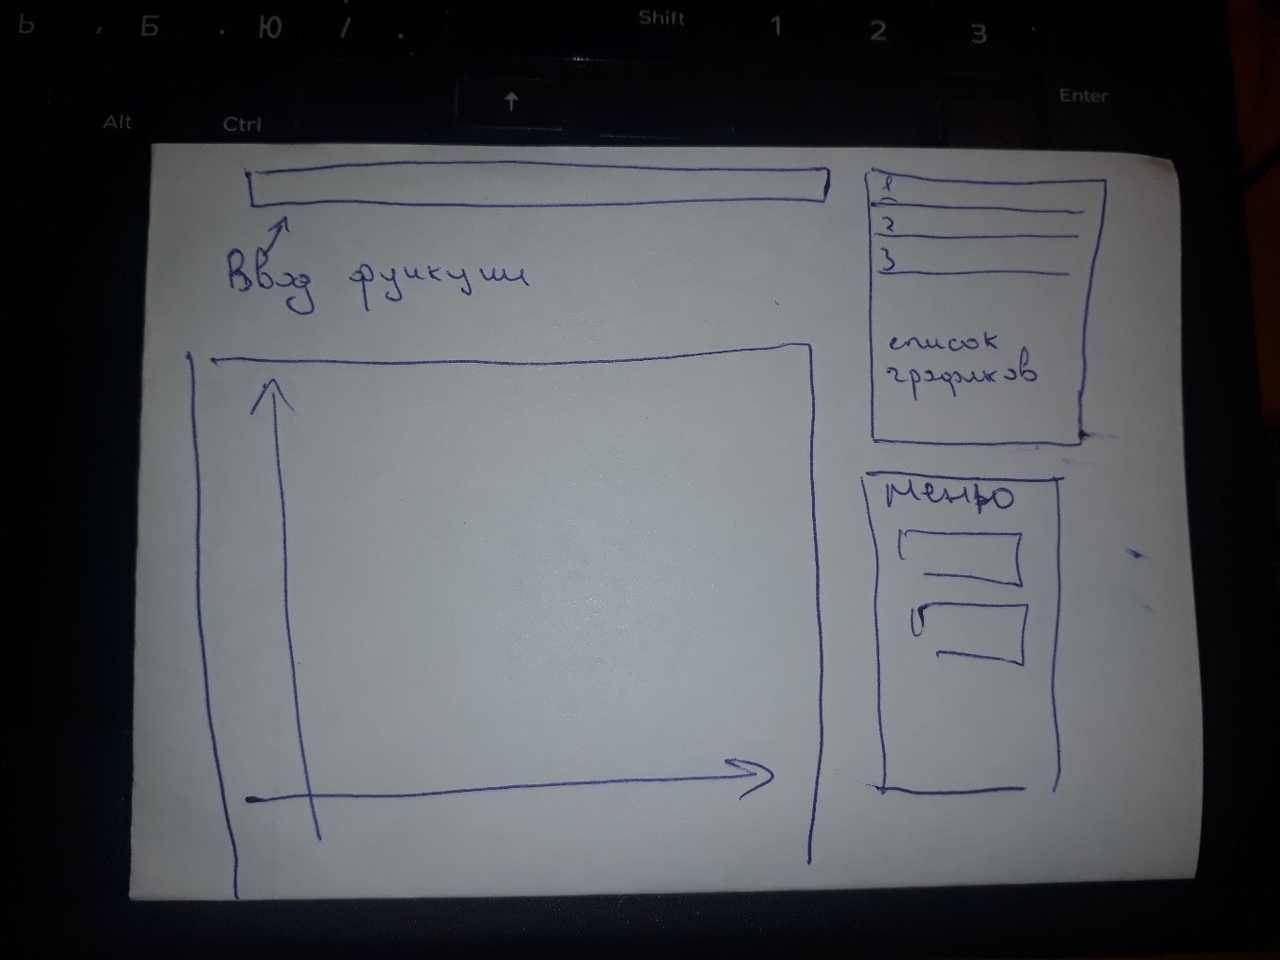 Ь , Б . Ю / . Shift 1 2 3 .
Alt Ctrl ↑ Enter
Ввод функции
1
2
3
список
графиков
меню